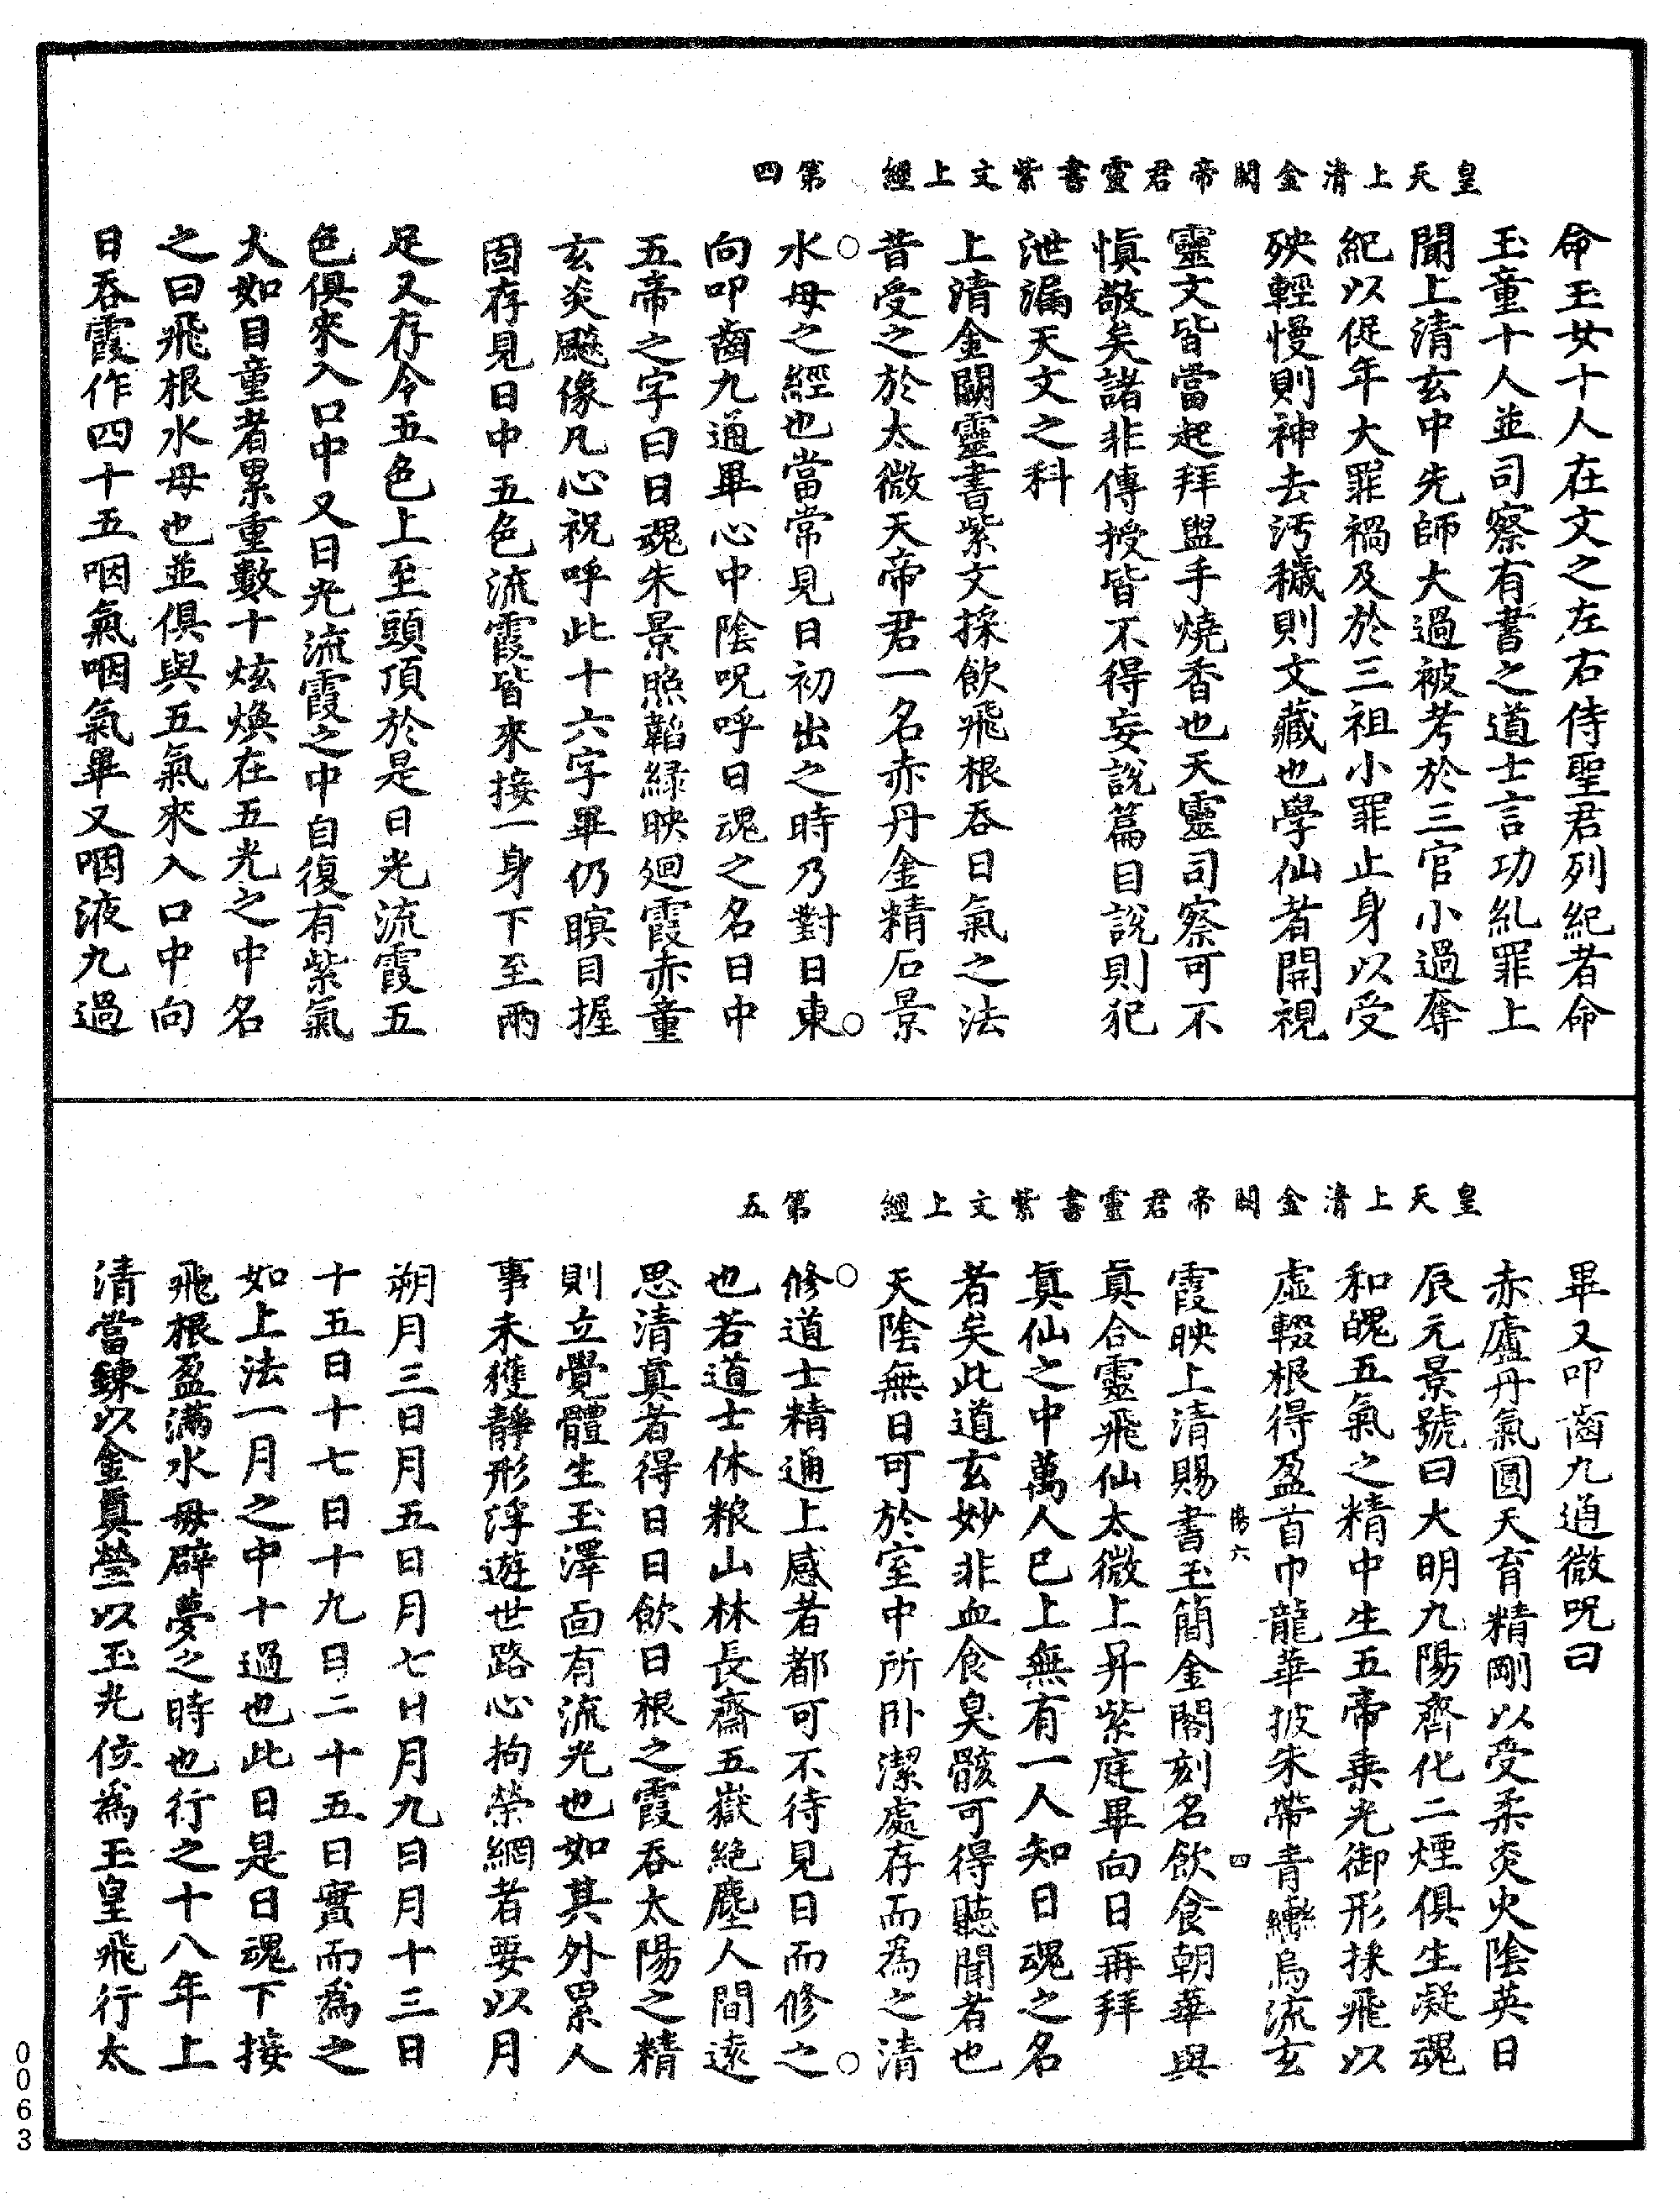 皇天上清金闕帝君靈書紫文上經　第四
命玉女十人在文之左右侍聖君列紀者命
玉童十人並司察有書之道士言功糺罪上
聞上清玄中先師大過被考於三官小過奪
紀以促年大罪禍及於三祖小罪止身以受
殃輕慢則神去汚穢則文藏也學仙者開視
靈文皆當起拜盥手燒香也天靈司察可不
慎敬矣諸非傳授皆不得妄說篇目說則犯
泄漏天文之科
上清金闕靈書紫文採飲飛根吞日氣之法
昔受之於太微天帝君一名赤丹金精石景
水母之經也當常見日初出之時乃對日東
向叩齒九通畢心中陰呪呼日魂之名日中
五帝之字曰日魂朱景照韜綠映廻霞赤童
玄炎飈像凡心祝呼此十六字畢仍瞑目握
固存見日中五色流霞皆來接一身下至兩
足又存令五色上至頭頂於是日光流霞五
色俱來入口中又日光流霞之中自復有紫氣
大如目童者累重數十炫煥在五光之中名
之曰飛根水母也並俱與五氣來入口中向
日吞霞作四十五咽氣咽氣畢又咽液九過
皇天上清金闕帝君靈書紫文上經　第五
畢又叩齒九通微呪曰
赤廬丹氣圓天育精剛以受柔炎火陰英日
辰元景號曰大明九陽齊化二煙俱生凝魂
和魄五氣之精中生五帝乘光御形採飛以
虛輟根得盈首巾龍華披朱帶青轡烏流玄
霞映上清賜書玉簡金閣刻名飲食朝華與
眞合靈飛仙太微上昇紫庭畢向日再拜
眞仙之中萬人巳上無有一人知日魂之名
者矣此道玄妙非血食臭骸可得聽聞者也
天陰無日可於室中所卧潔處存而爲之清
修道士精通上感者都可不待見日而修之
也若道士休粮山林長齋五嶽絶塵人間遠
思清眞者得日日飲日根之霞吞太陽之精
則立覺體生玉澤面有流光也如其外累人
事未獲靜形浮遊世路心拘榮網者要以月
朔月三日月五日月七日月九日月十三日
十五日十七日十九日二十五日實而爲之
如上法一月之中十過也此日是日魂下接
飛根盈滿水母辟夢之時也行之十八年上
清當鍊以金眞瑩以玉光位爲玉皇飛行太
傷六　四
0063